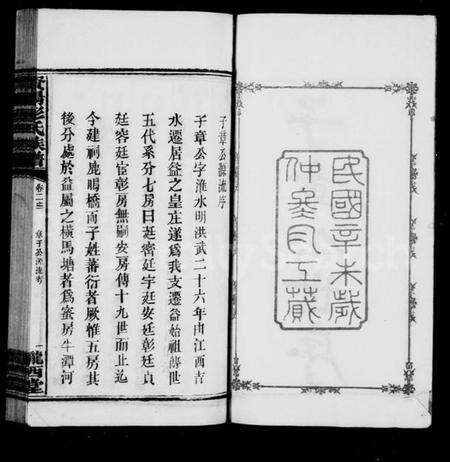 民國辛未歲
仲冬月工蕆
子章公源流序
子章公字淮水明洪武二十六年由江西吉
水遷居益之皇庄遂爲我支遷益始祖傳世
五代系分七房曰廷密廷字廷安廷彰廷貞
廷容廷宦彰房無嗣安房傳十九世而止迄
今建祠鹿鳴橋而子姓蕃衍者厥惟五房其
後分處於益屬之橫馬塘者爲蜜房牛潭河
彭氏族譜
卷二
章子公源流序
一
隴西堂